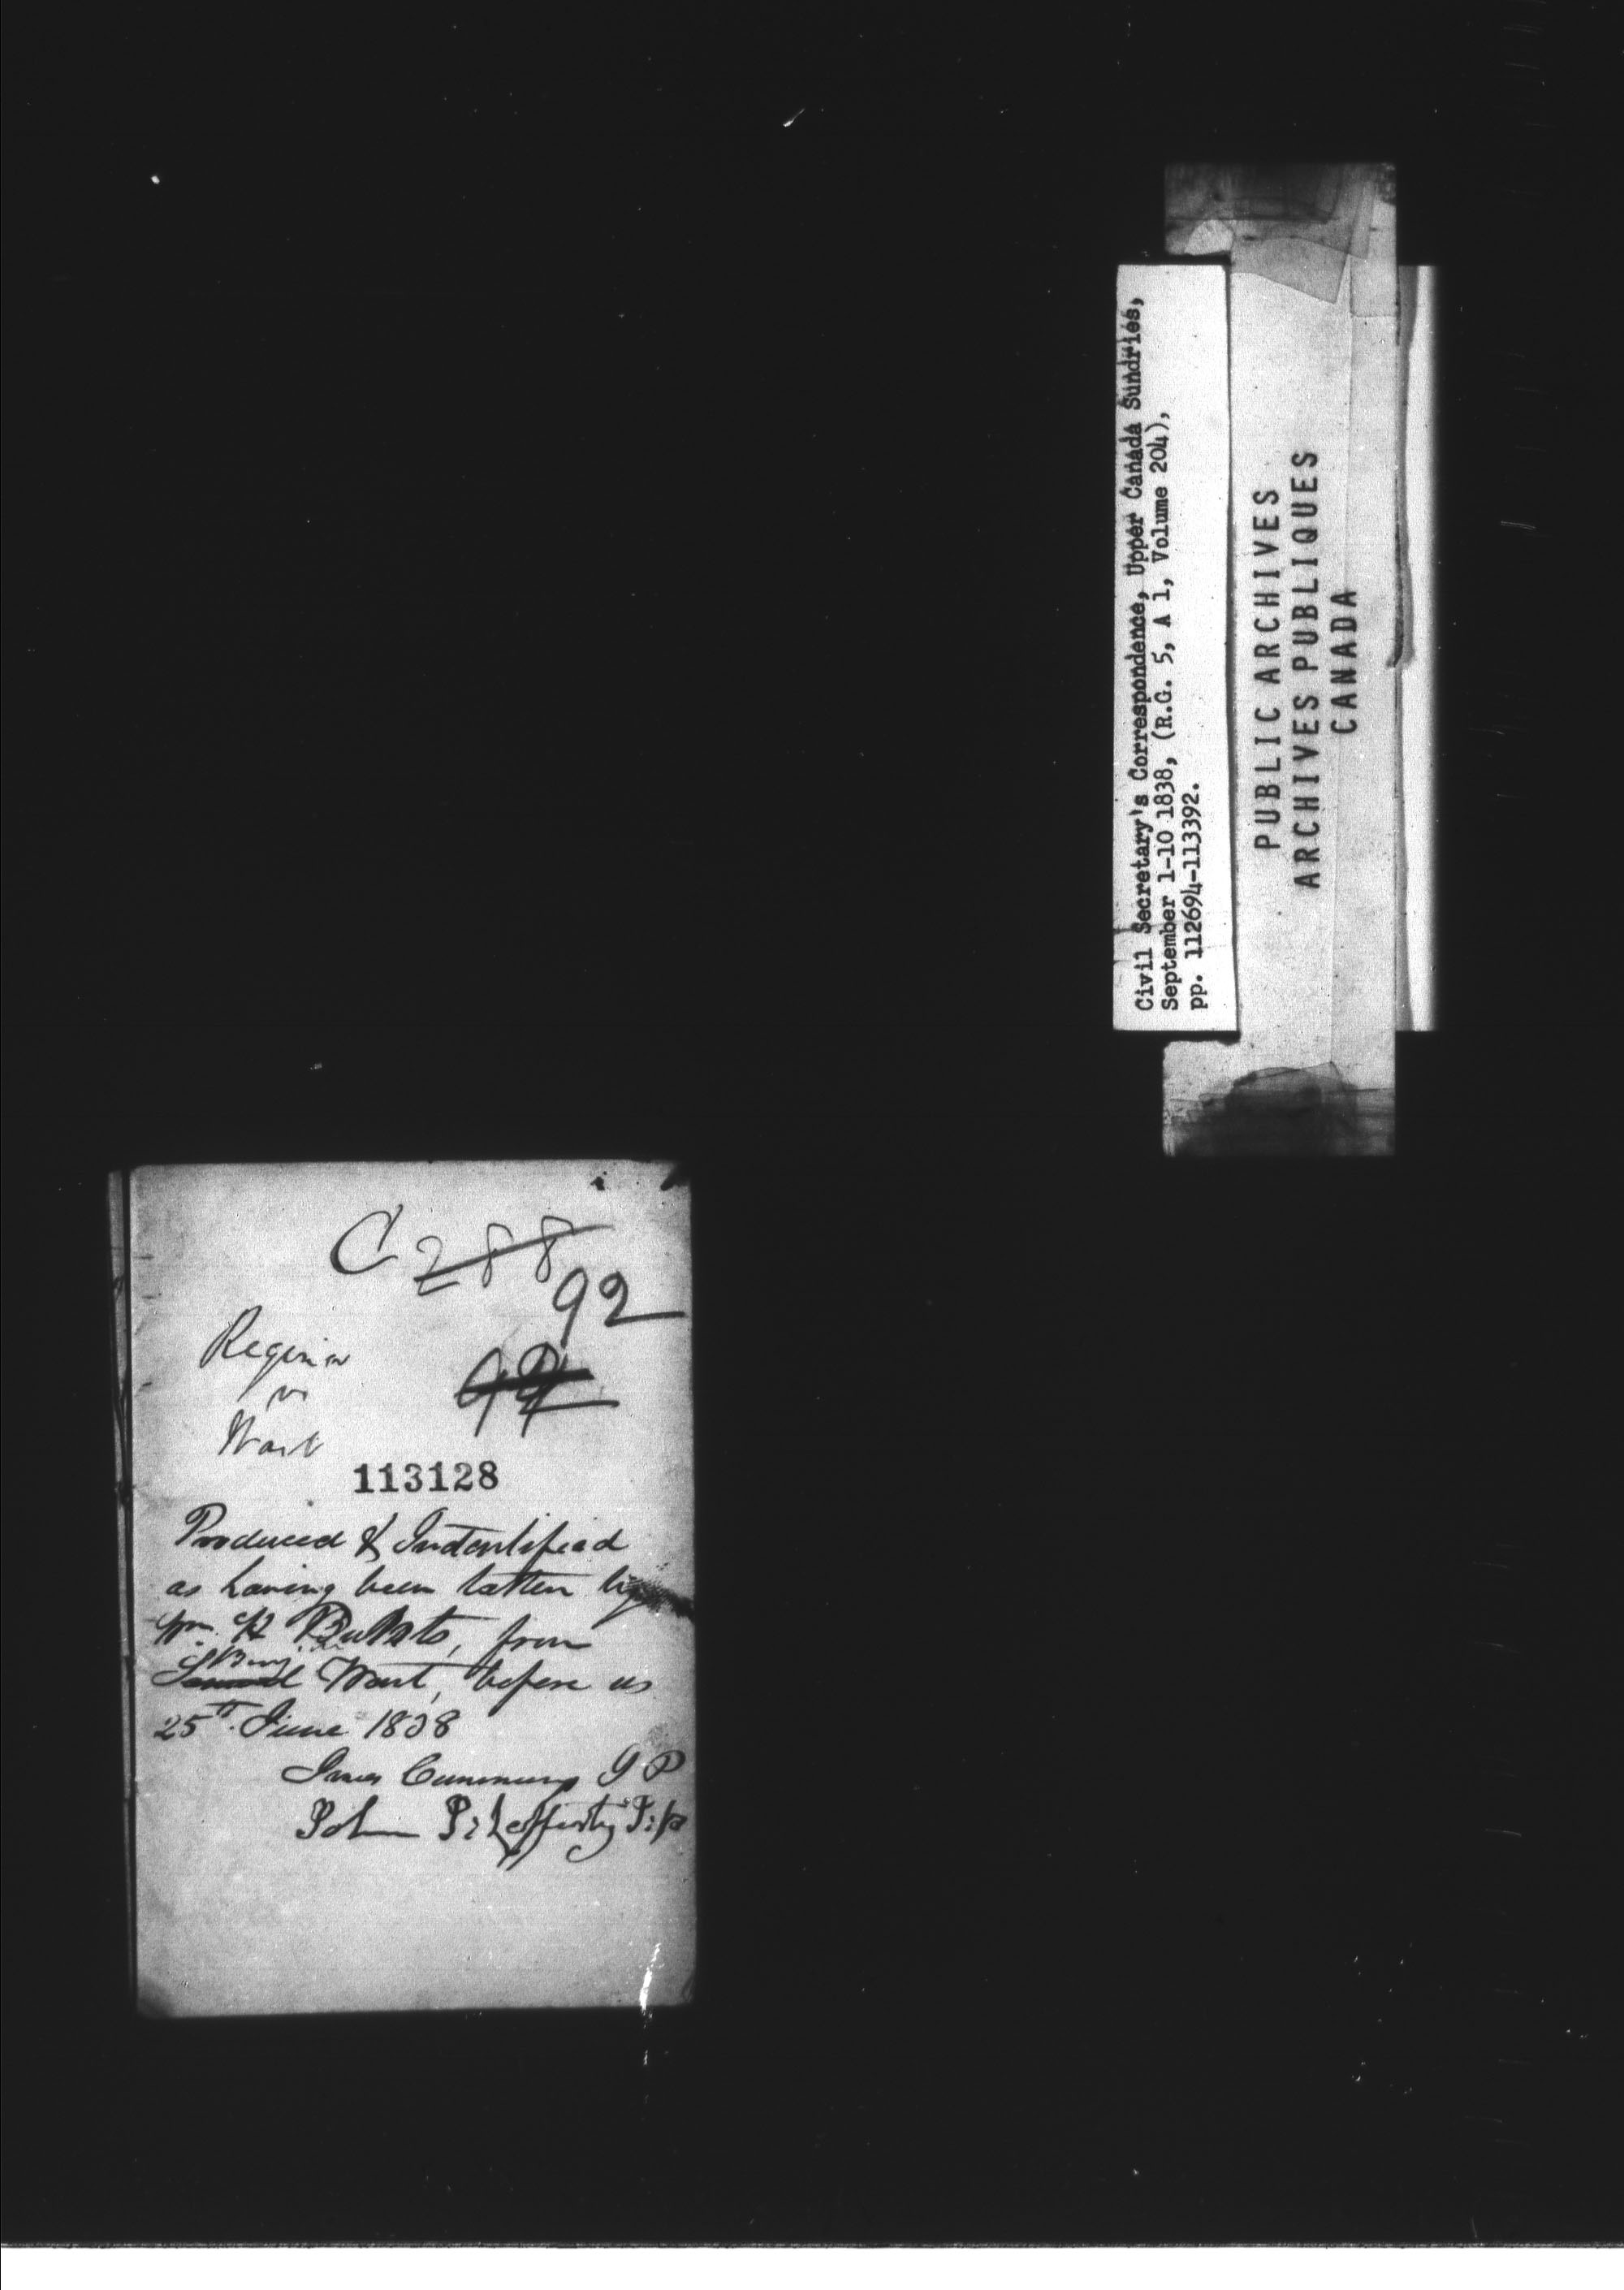 Civil Secretary's Correspondence, Upper Canada Sundries,
September 1-10 1838, (R.G. 5, A 1, Volume 204),
pp. 112694-113392.
PUBLIC ARCHIVES
ARCHIVES PUBLIQUES
CANADA
C 288
92
Regina
vs
Wait
113128
Produced & Indentified
as having been taken by
from
Benj. Wait, before us
25th June 1838
James Cummings J P
John P: Lefferty J: P